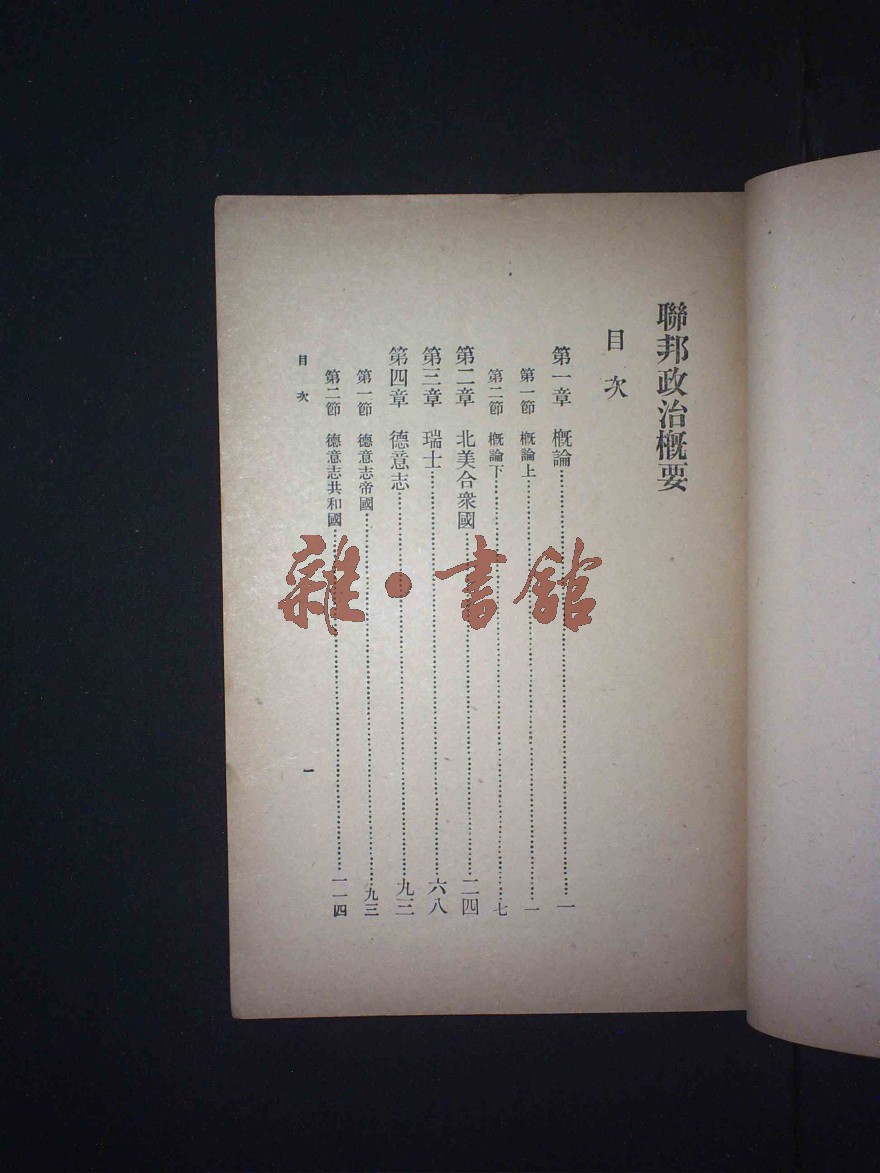 聯邦政治槪要
目次
第一章 槪論……一
第一節 槪論上……一
第二節 槪論下……七
第二章 北美合衆國……二四
第三章 瑞士……六八
第四章 德意志……九三
第一節 德意志帝國……九三
第二節 德意志共和國……一一四
目次 一
雜·書館